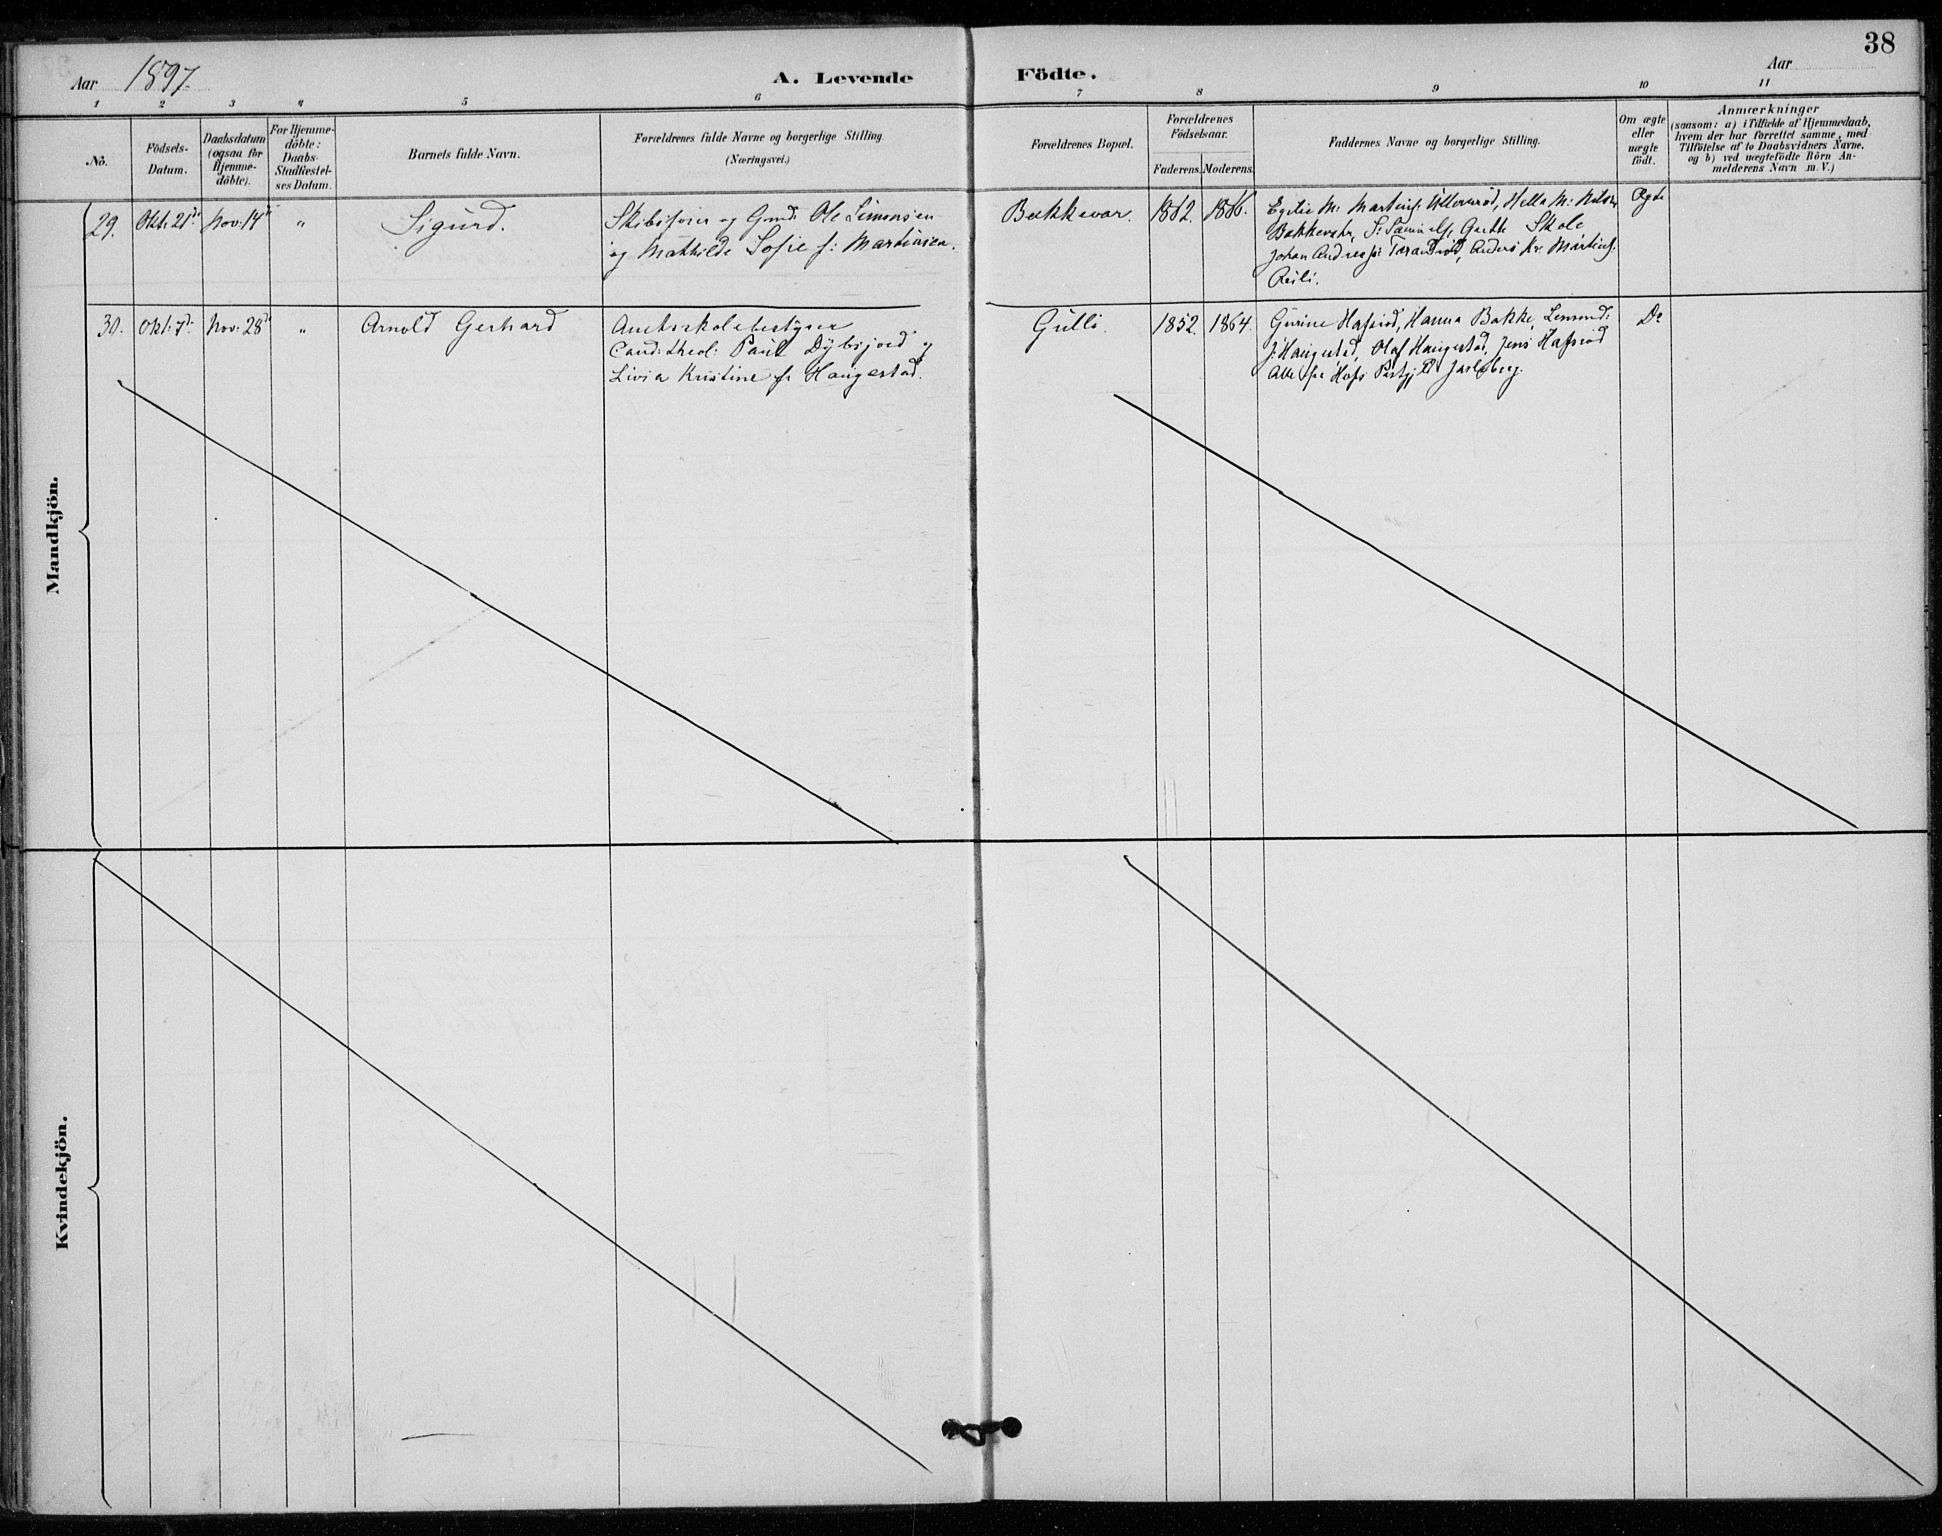 38
Aar 1897.
A. Levende Födte.
Aar
1 2 3 4 5 6 7 8 9 10 11
No.
Födsels-
Datum.
Daabsdatum
(ogsaa for
Hjemme-
döbte).
For Hjemme-
döbte:
Daabs-
Stadfæstel-
ses Datum.
Barnets fulde Navn.
Forældrenes fulde Navne og borgerlige Stilling.
(Næringsvei.)
Forældrenes Bopæl.
Forældrenes
Födselsaar.
Faderens. Moderens.
Faddernes Navne og borgerlige Stilling.
Om ægte
eller
uægte
födt.
Anmærkninger
(saasom: a) i Tilfælde af Hjemmedaab,
hvem der har forrettet samme, med
Tilföielse af to Daabsvidners Navne,
og b) ved uægtefödte Börn An-
melderens Navn m. V.)
Mandkjön.
29. Okt: 21de Nov: 14de " Sigurd.
Skibsfører og Gmd: Ole Simonsen
og Mathilde Sofie f: Martinsen.
Bakkevar. 1862. 1866.
M: Martins: Hella M: Nilsen
S: Samuels: Skole
Johan Andreas: Anders Kr. Martins:
Ægte
30. Okt: 7de Nov: 28de " Arnold Gerhard
Amtsskolebestyrer
Cand: theol: Paul Dybsjord og
Livia Kristine f: Haugestad.
Gulli. 1852. 1864.
Gurine Hafsrød, Hanna Bakke,
J: Haugestad, Olaf Haugestad, Jens Hafsrød
Alle fra Hofs Præstgjld Jarlsberg.
Do
Kvindekjön.